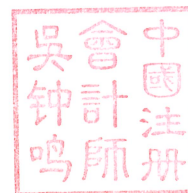 中國注册
會計師
吳钟鸣